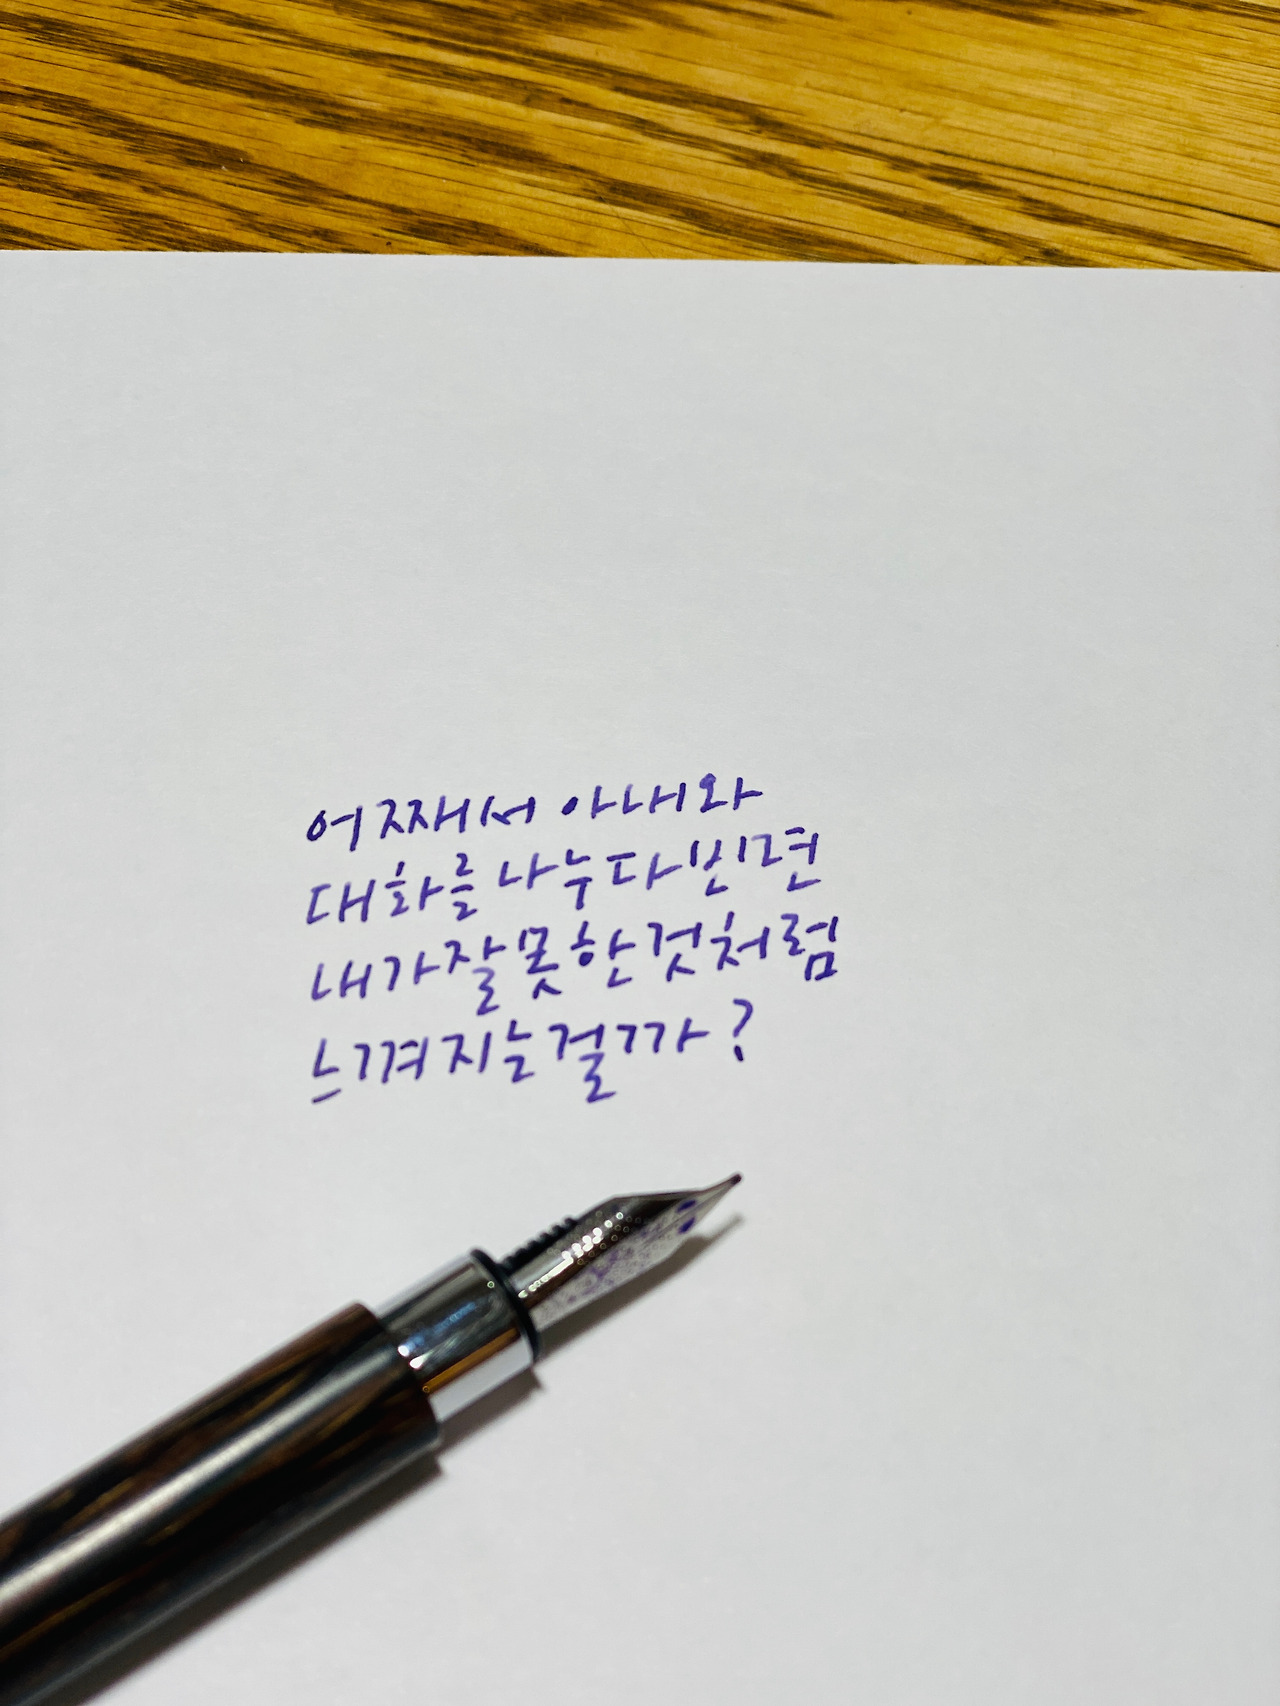 어째서 아내와
대화를 나누다 빈면
내가 잘못한 것처럼
느껴지는 걸까?